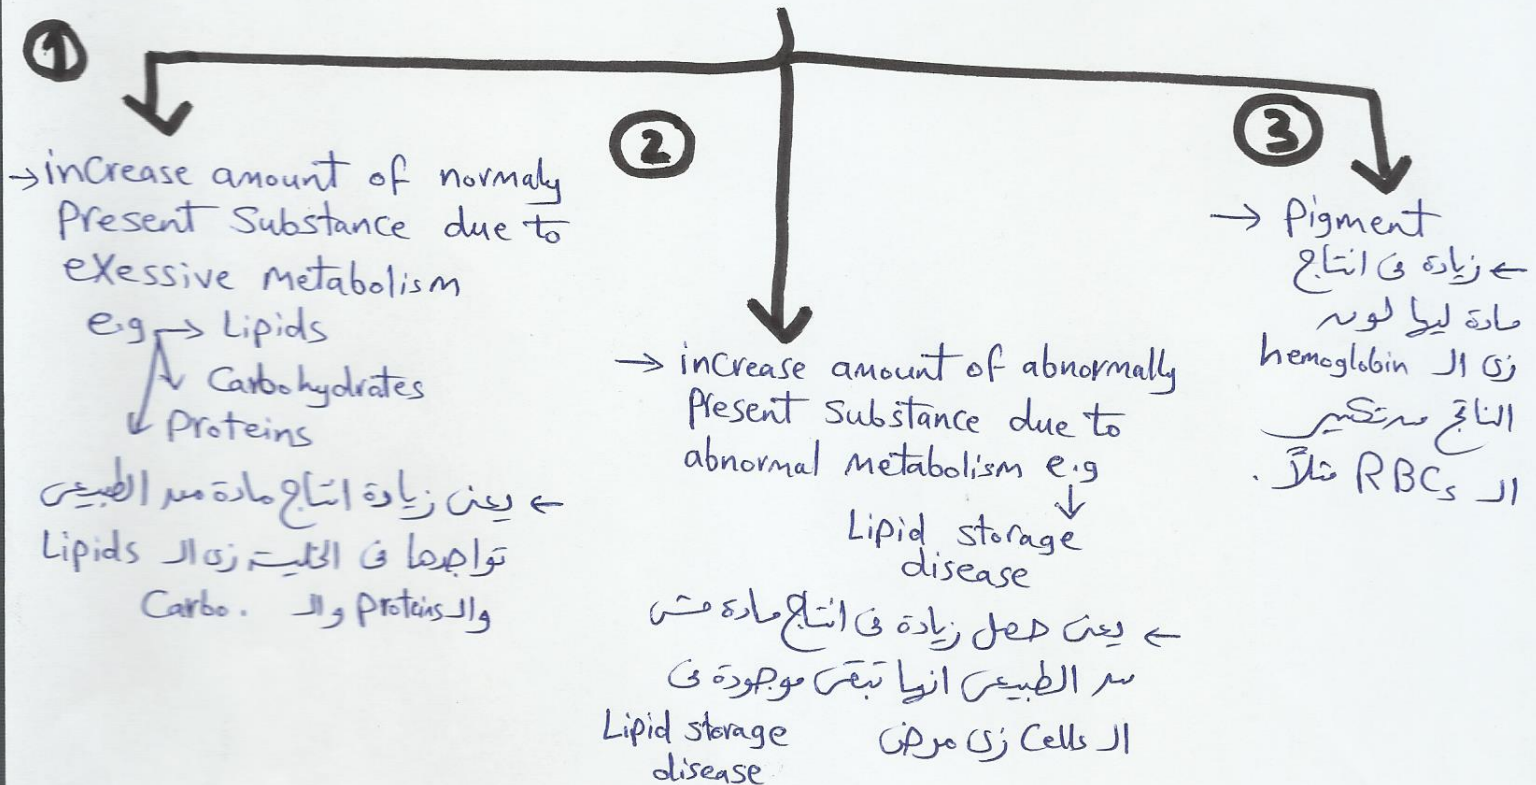 1
→ increase amount of normaly
Present Substance due to
exessive metabolism
e.g → Lipids
Carbohydrates
Proteins
← يعنى زيادة انتاج مادة من الطبيعى
تواجدها فى الخلية زى الـ Lipids
والـ Proteins والـ Carbo.
2
→ increase amount of abnormally
Present Substance due to
abnormal metabolism e.g
↓
Lipid storage
disease
← يعنى حصل زيادة فى انتاج مادة مش
من الطبيعى انها تبقى موجودة فى
الـ Cells زى مرض Lipid storage
disease
3
→ Pigment
← زيادة فى انتاج
مادة ليها لون
زى الـ hemoglobin
الناتج من تكسير
الـ RBCs مثلاً.